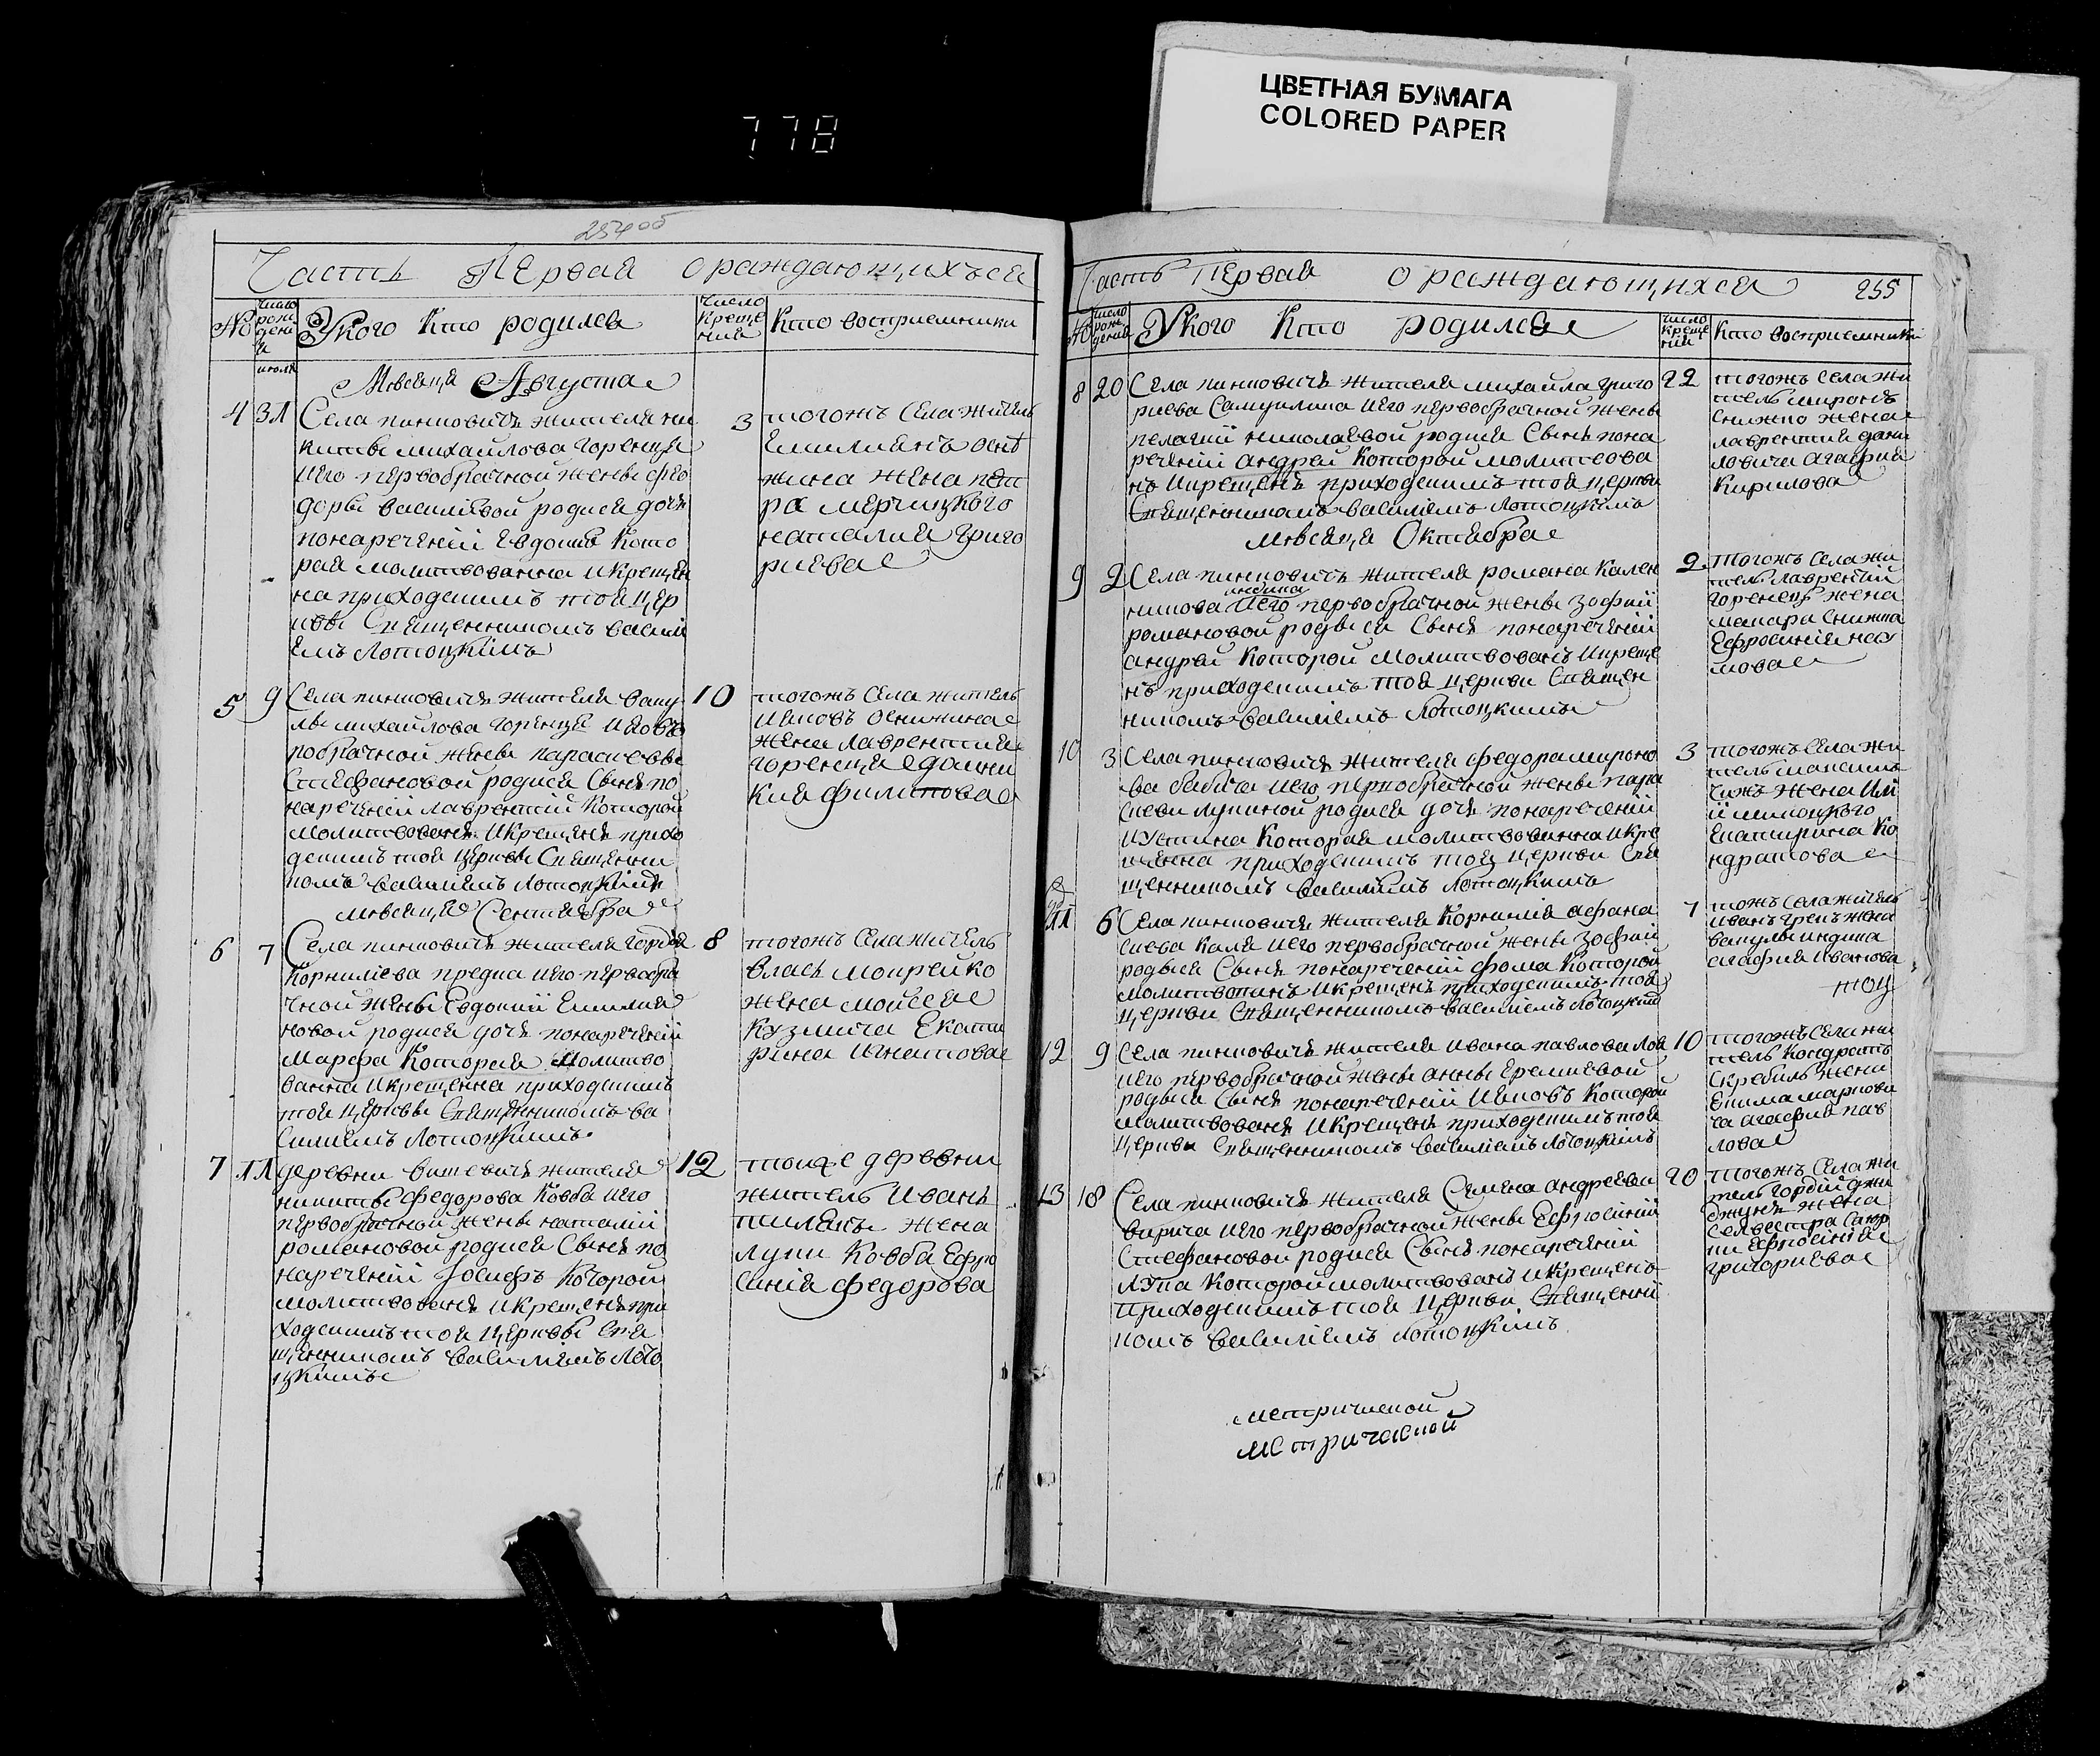 ЦВЕТНАЯ БУМАГА
COLORED PAPER
778
254 об
Часть Первая о раждающихъся
№
число рождения
У кого кто родился
число крещения
кто восприемники
июля
Месяца Августа
4 31 Села пинковичъ жителя ни
киты михайлова горенца
и его первобрачной жены фео
доры василевой родися дочь
3 тогожъ села житель
Емилиянъ
жена пет
ра мерчицкого
наталия григо
риева
понаречений Евдокия кото
рая молитвованна и крещен
на приходскимъ тоя цер
кви Священникомъ васили
емъ Лотоцкимъ
5 9 Села пинковичъ жителя ваку
лы михайлова горенца и его
робрачной жены параскевы
Стефановой родися Сынъ по
наречений лаврентий которой
молитвованъ и крещенъ прихо
дскимъ тоя церкви Священни
комъ василиемъ Лотоцкимъ
10 тогожъ села житель
Иаковъ
жена лаврентия
горенца Едокия
филипова
месяца Сентября
6 7 Села пинковичъ жителя гордея
Корнилиева предка и его первобра
чной жены Евдокии Емилия
новой родися дочь понаречений
Марфа Которая молитво
ванна и крещенна приходскимъ
тоя церквы Священникомъ ва
силиемъ Лотоцкимъ
8 тогожъ села житель
власъ мокрейко
жена мойсея
кузмича Екате
рина игнатова
7 11 деревни вишевичъ жителя
никиты федорова Ковба и его
первобрачной жены наталии
романовой родися Сынъ по
наречений Иосифъ которой
молитвованъ и крещенъ при
ходскимъ тоя церквы Свя
щенникомъ василиемъ Лото
цкимъ
12 тоиже деревни
житель Иванъ
жена
луки Ковба Ефро
синия федорова
Часть Первая о раждающихся 255
№
число рождения
У кого кто родился
число крещений
кто восприемники
8 20 Села пинковичъ жителя михайла григо
риева Самуилика и его первобрачной жены
пелагии николаевой родися Сынъ пона
речений андрей которой молитвова
нъ и крещенъ приходскимъ тоя церкви
Священникомъ василиемъ Лотоцкимъ
22 тогожъ села жи
тель миронъ
снижко жена
лаврентия дани
ловича агафия
Кирилова
месяца Октября
9 2 Села пинковичъ жителя романа
индика
и его первобрачной жены зофии
романовой родыся Сынъ понаречений
андрей которой молитвованъ и креще
нъ приходскимъ тоя церкви Священ
никомъ василиемъ Лотоцкимъ
2 тогожъ села жи
тель лаврентий
горенецъ жена
макара снижка
Ефросиния нау
мова
10 3 Села пинковичъ жителя федора мироно
ва бабича и его первобрачной жены пара
скеви лукиной родися дочъ понаречений
иустина которая молитвованна и кре
щенна приходскимъ тоя церкви Свя
щенникомъ василиемъ Лотоцкимъ
3 тогожъ села жи
тель максимъ
чижъ жена
Екатирина Ко
ндратова
11 6 Села пинковичъ жителя Корнилия афана
сиева Каля и его первобрачной жены зофии
родыся Сынъ понаречений фома которой
молитвованъ и крещенъ приходскимъ тоя
церкви Священникомъ василиемъ Лотоцкимъ
7 тожъ села житель
иванъ жена
вакулы индика
агафия иванова
12 9 Села пинковичъ жителя ивана павлова
и его первобрачной жены анны Еремиевой
родыся Сынъ понаречений Иаковъ которой
молитвованъ и крещенъ приходскимъ тоя
церкви Священникомъ василиемъ Лотоцкимъ
10 тогожъ села жи
тель Кондратъ
Скребиль жена
Екима маркови
ча агафия пав
лова
13 18 Села пинковичъ жителя Семена андреева
вирича и его первобрачной жены Ефросинии
Стефановой родися Сынъ понаречений
лука которой молитвованъ и крещенъ
приходскимъ тоя церкви Священни
комъ василиемъ Лотоцкимъ
20 тогожъ села жи
тель гордий
жена
селвестра
Ефросиния
григориева
метрической
метрической